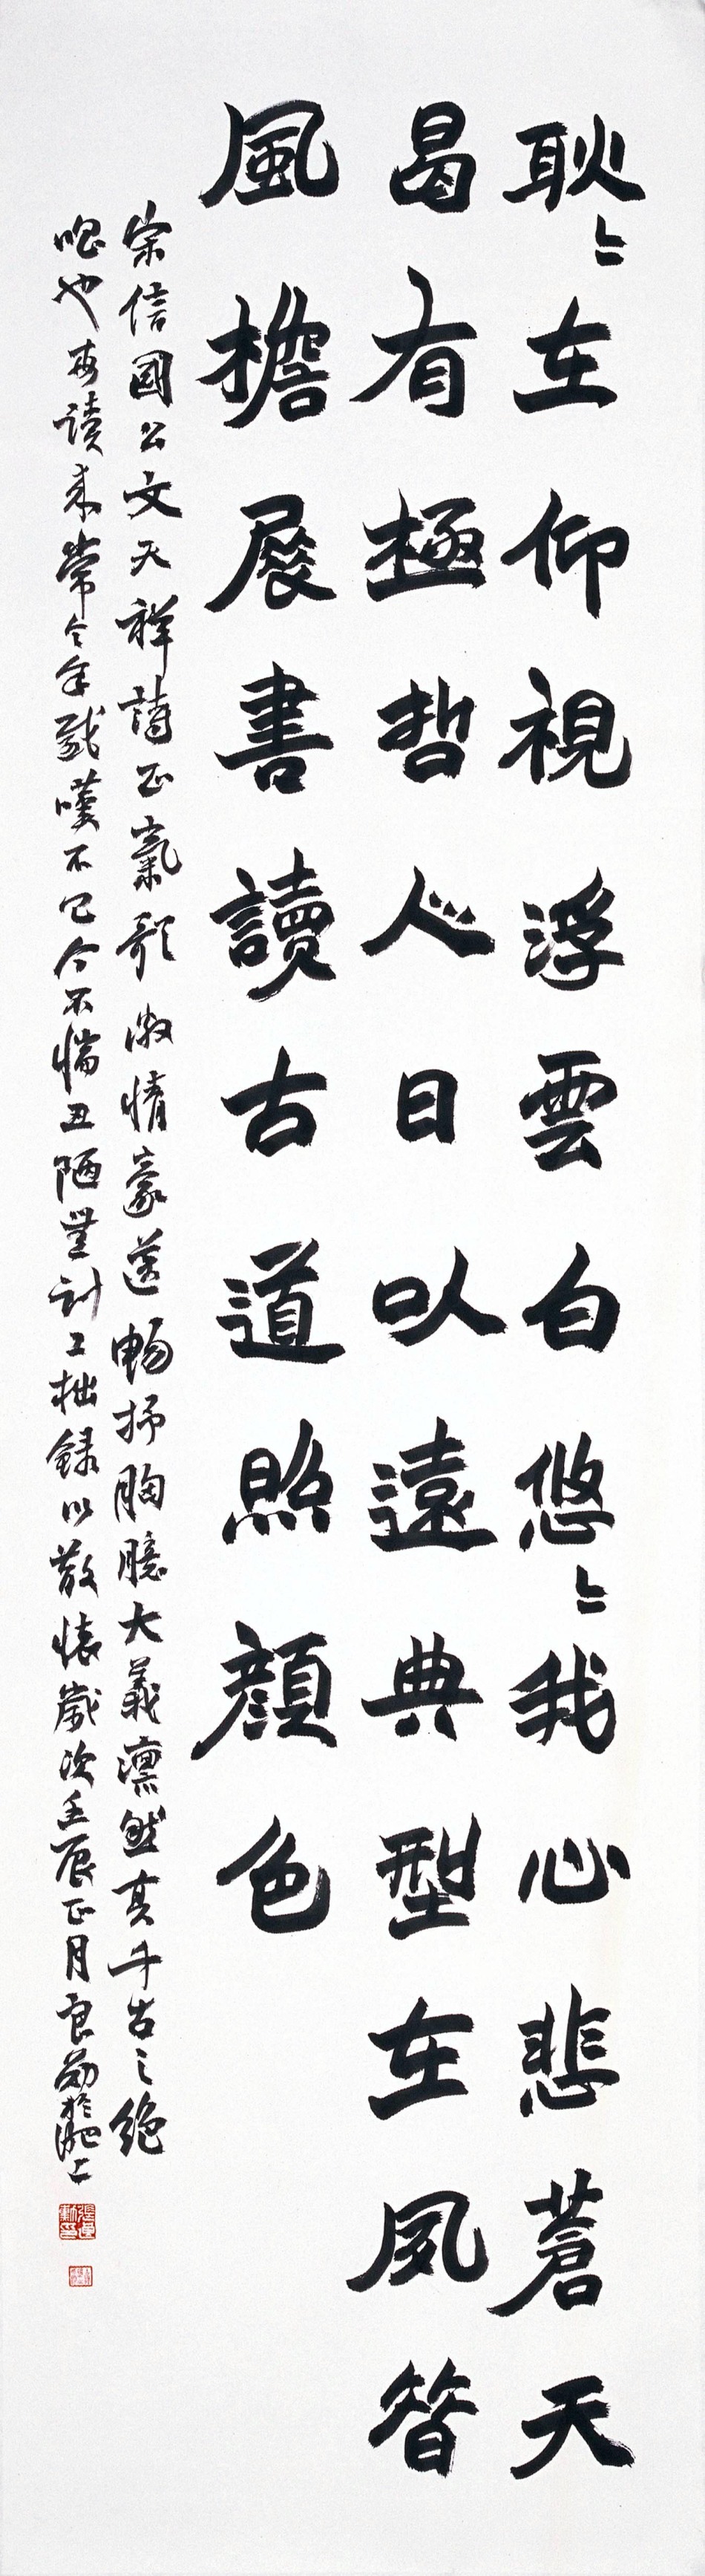 耿〻在仰視浮雲白悠〻我心悲蒼天
曷有極哲人日以遠典型在夙昔
風檐展書讀古道照顏色
宋信國公文天祥詩正氣歌激情豪邁暢抒胸臆大義凜然真千古之絕
唱也每讀來常令余感嘆不已今不惴丑陋無計工拙錄以散懷歲次壬辰正月良勛於淝上
張良勛印